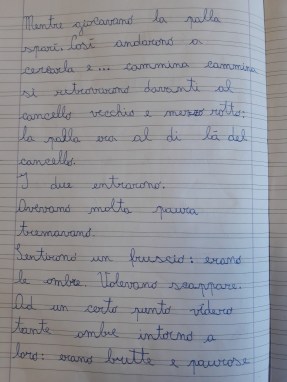 Mentre giocavano la palla
sparì. Così andarono a
cercarla e... cammina cammina
si retrovarono davanti al
cancello vecchio e mezzo rotto:
la palla era al di là del
cancello.
I due entrarono.
Avevano molta paura
tremavano.
Sentirono un fruscio: erano
le ombre. Volevano scappare.
Ad un certo punto videro
tante ombre intorno a
loro: erano brutte e paurose